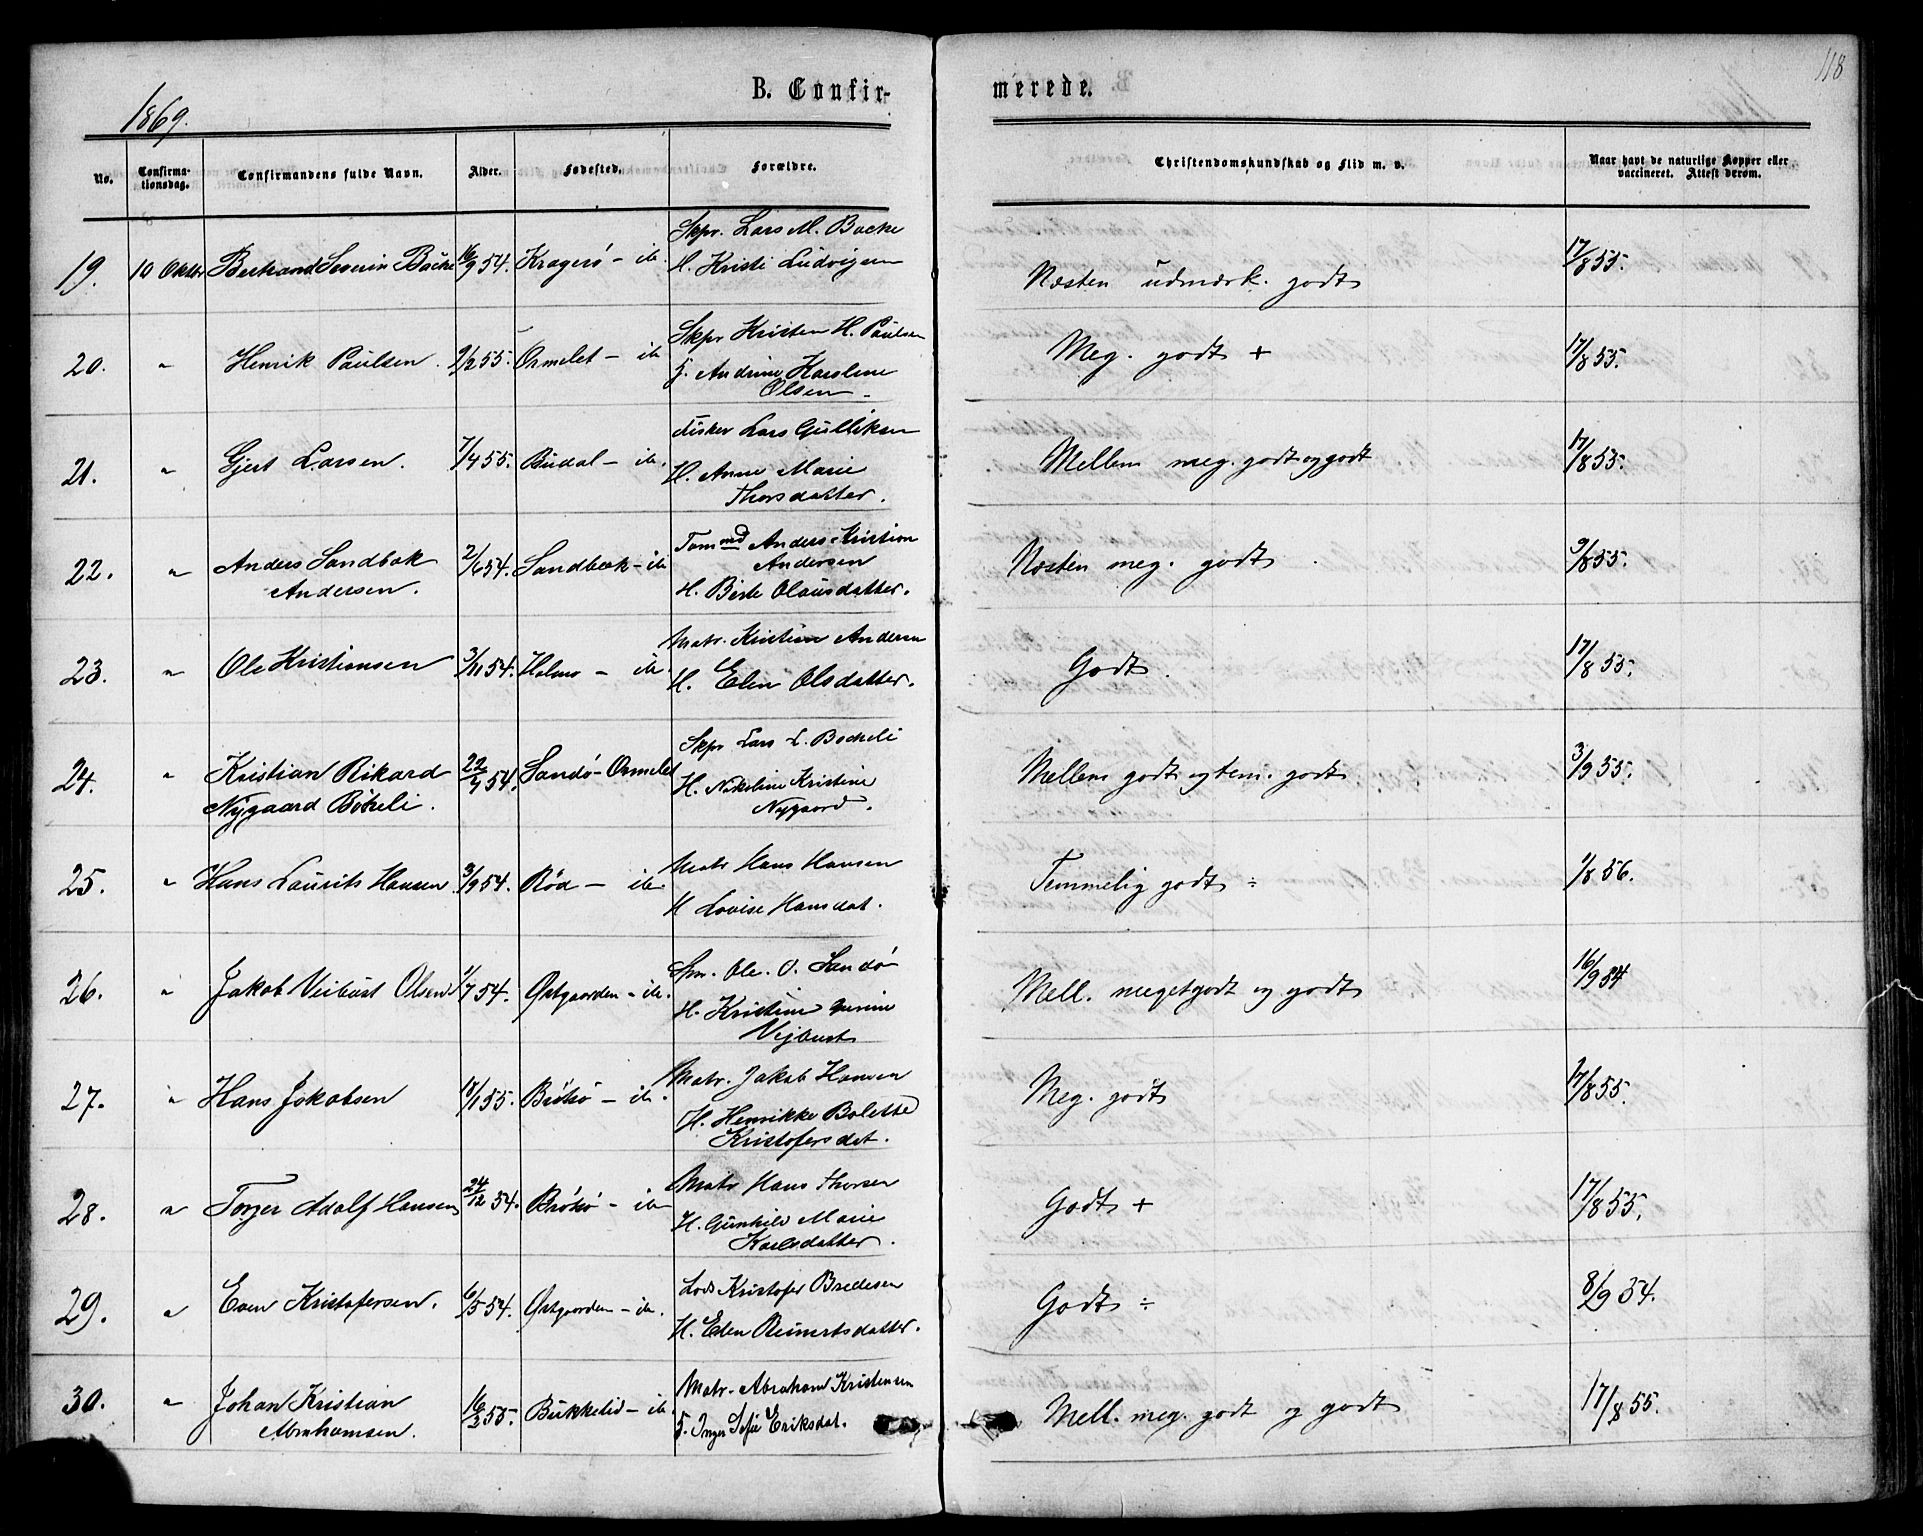 118
1869.
B. Confirmerede.
No. Confirmationsdag. Confirmandens fulde Navn. Alder. Fødested. Forældre. Christendomskundskab og Flid m. v. Naar havt de naturlige Kopper eller vaccineret. Attest derom.
Skpr. Lars M. Backe
19. 10 Oktbr Bertrand Severin Backe 16/9 54. Kragerø - ib. H. Kristi Ludvigsen Næsten udmærk. godt 17/8 55.
Skpr Kristen H. Paulsen
20. " Henrik Paulsen. 9/2 55. Ormelet - ib F. Andrine Karoline Meg. godt + 17/8 55.
Olsen
Fisker Lars Gulliksen
21. " Gjert Larsen. 7/4 55. Budal - ib. H. Anne Marie Mellem meg. godt og godt 17/8 55.
Thorsdatter.
Tømmd Anders Kristian
22. " Anders Sandbæk 2/6 54. Sandbæk - ib Andersen Næsten meg. godt 9/8 55.
Andersen. H. Birte Olausdatter.
Matr. Kristian Andersen
23. " Ole Kristiansen 3/11 54. Holmø - ib. H. Elen Olsdatter. Godt 17/8 55.
Skpr Lars L. Bøcheli
24. " Kristian Rikard 22/7 54. Sandø - Ormelet H. Nikoline Kristine Mellem godt og tem. godt 3/9 55.
Nygaard Bøkeli. Nygaard.
Matr Hans Hansen
25. " Hans Laurits Hansen 3/9 54. Rød - ib Temmelig godt ÷ 9/8 56.
H Lovise Hansdat.
Spm. Ole O. Sandø
26. " Jakob Veibust Olsen 1/7 54. Østgaarden - ib. H. Kristine Mell. meget godt og godt 16/9 54
Vejbust
Matr. Jakob Hansen
27. " Hans Jakobsen 18/1 55. Brøsø - ib. H. Henrikke Bolette Meg. godt 17/8 55.
Kristofersdat.
Matr Hans Thorsen
28. " Torger Adolf Hansen 24/12 54. Brøsø - ib H. Gunhild Marie Godt + 17/8 55.
Karlsdatter.
Lods Kristofer Bredesen
29. " Even Kristofersen. 6/5 54. Østgaarden - ib. Godt ÷ 8/9 54.
H. Elen Reinertsdatter.
Matr. Abraham Kristensen
30. " Johan Kristian 16/3 55. Bukkelid - ib. F. Inger Sofie Eriksdat. Mell. meg. godt og godt 17/8 55.
Abrahamsen.